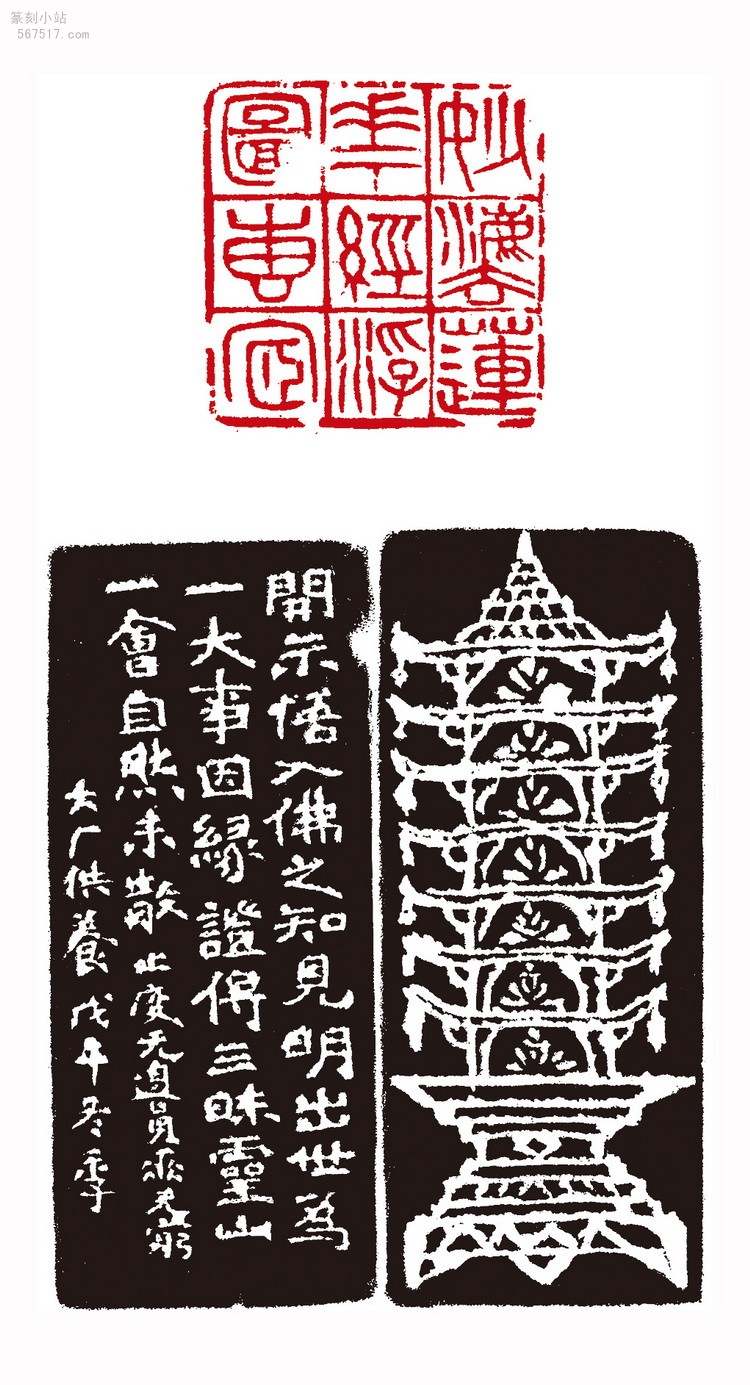 篆刻小站
567517.com
妙灋蓮
華經浮
圖
開示悟入佛之知見明出世為
一大事因緣證得三昧靈山
一會自然未散度无邊窮
大厂供養戊午冬季